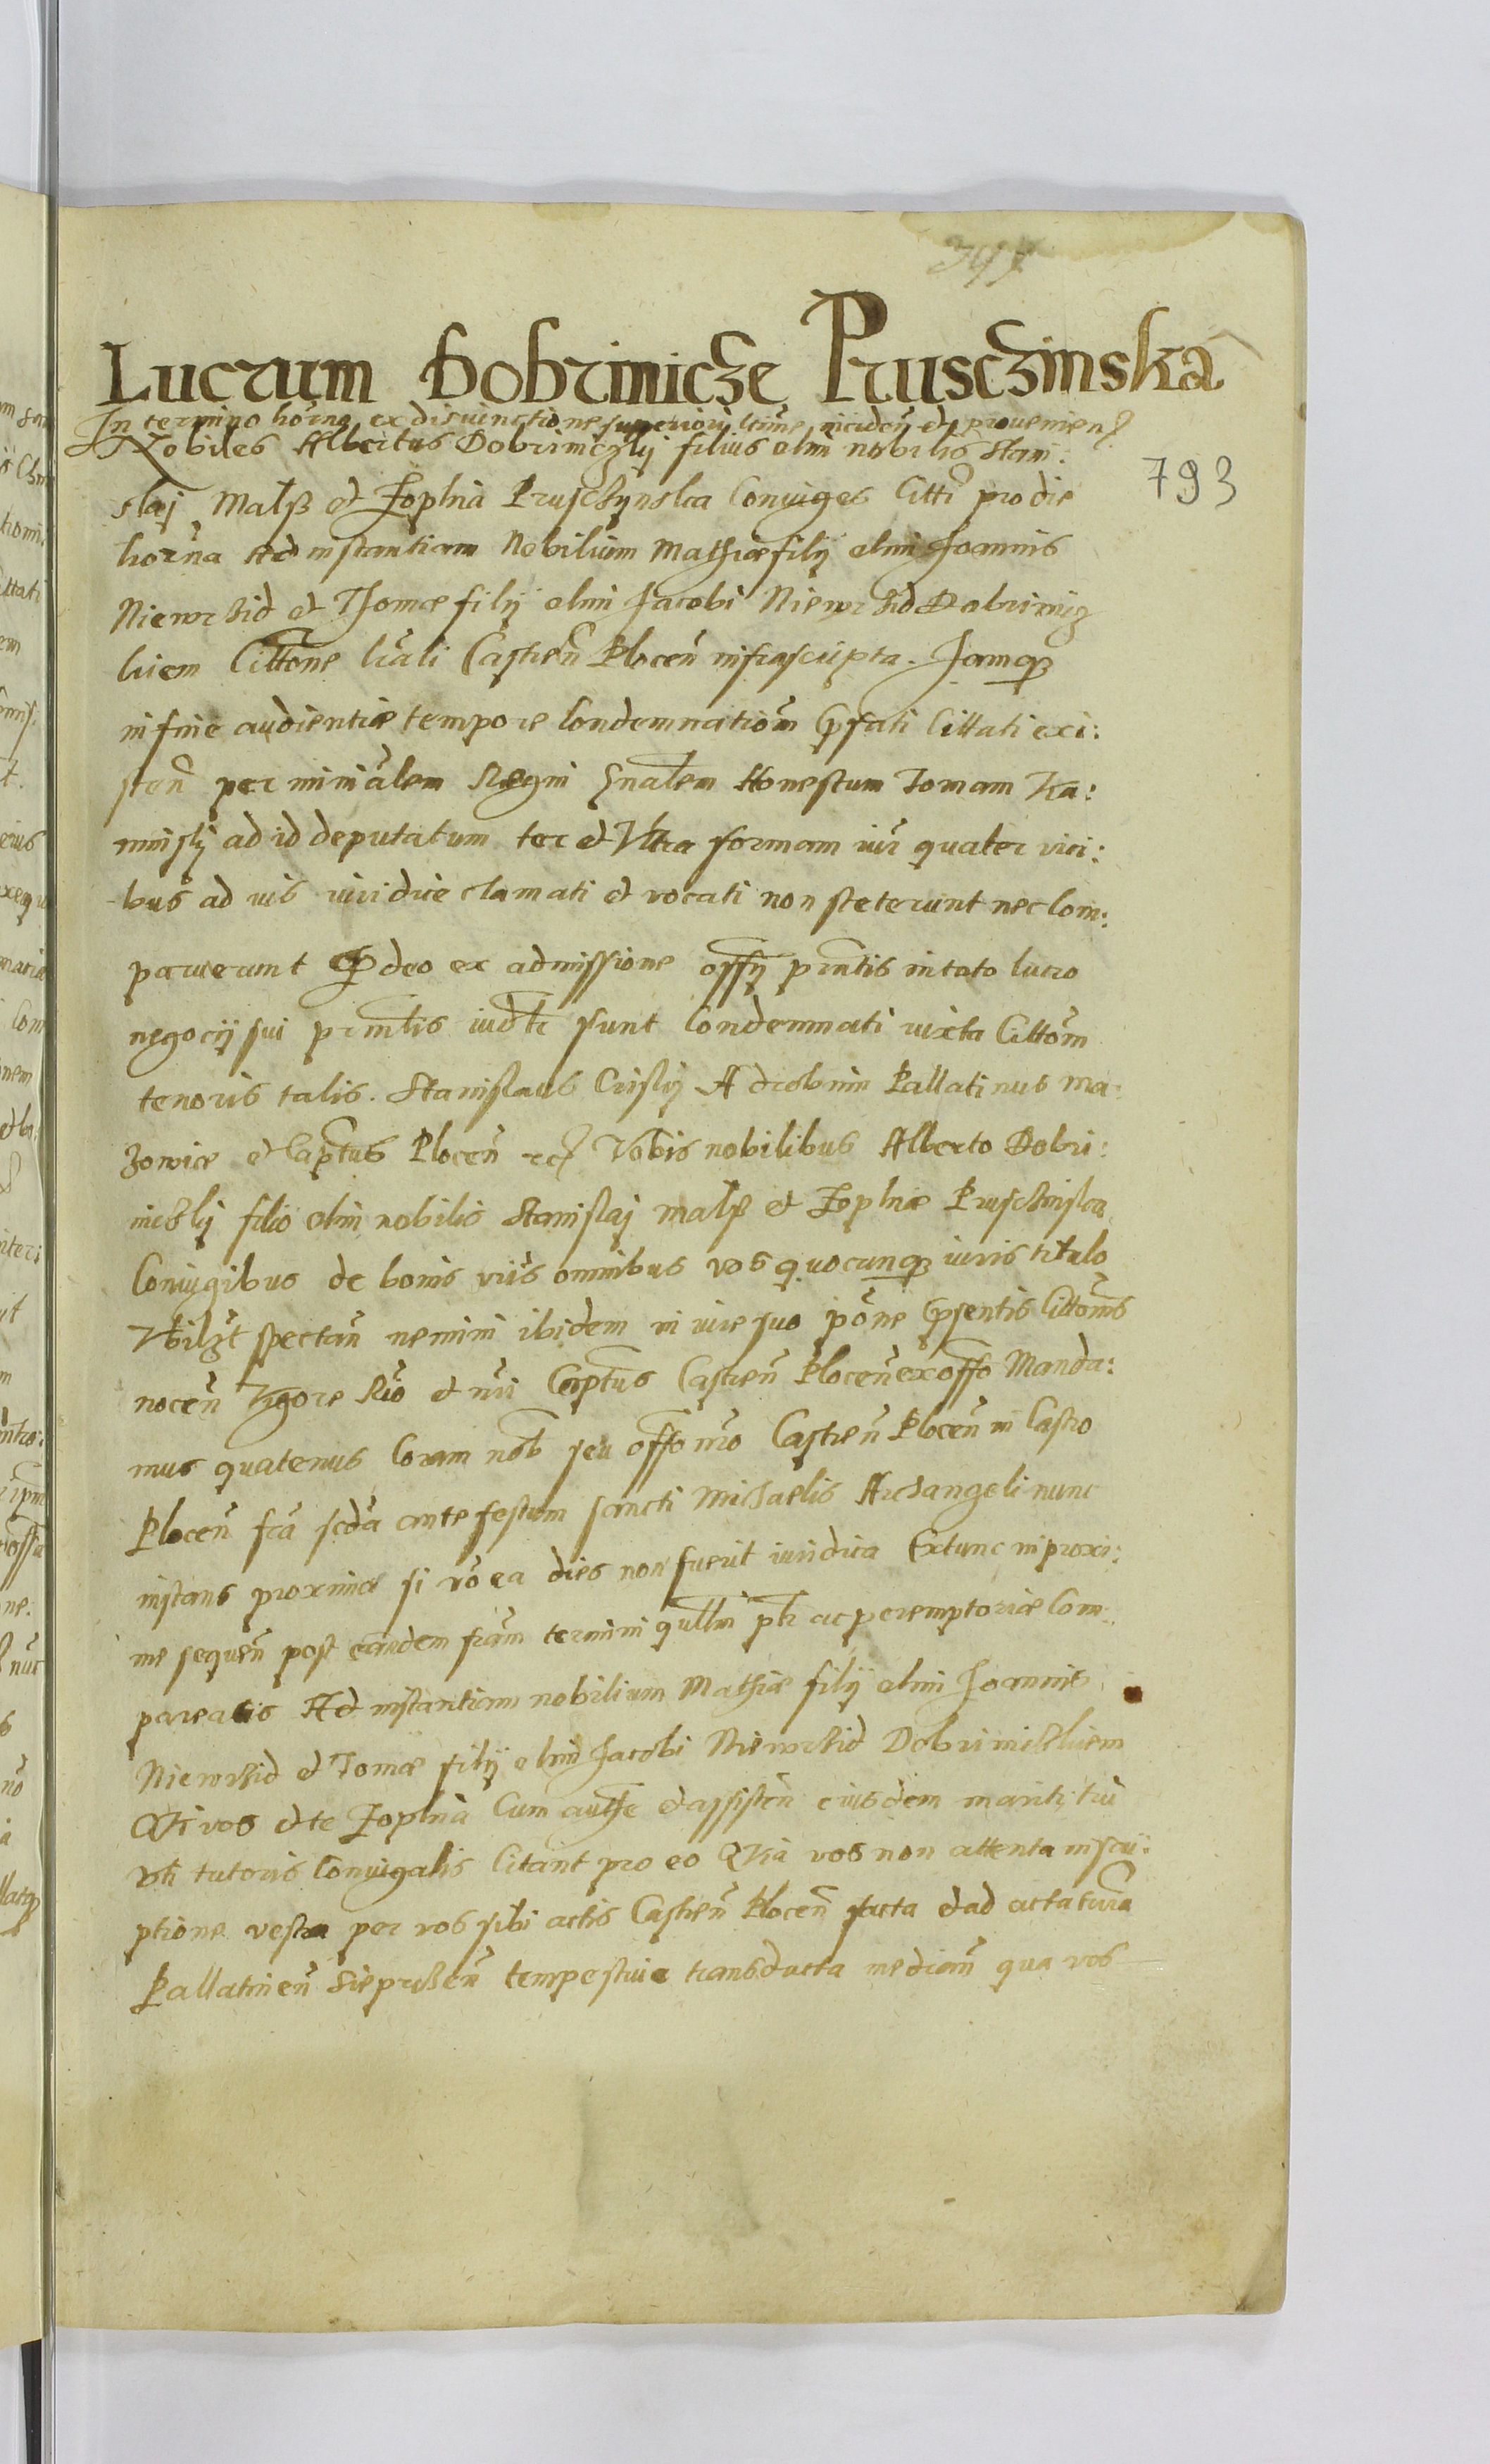 Lucrum Dobrinicze Prusczinska
In termino horna ex disiunctione superiori inciden et provenien
Nobiles Albertus Dobriniczky filius olim nobilis Stani:
slaj Malß et Zophia Pruschynska Coniuges Citti pro die
horna Ad instantiam Nobilium Mathiæ filij olim Joannis
Niewrzid et Thomæ filij olim Jacobi Niewrzid Dobriniczkiem
Cittone lrali Castren Plocen infrascripta. Jamq3
in fine audientiæ tempore Condemnationū Prsati Cittati exi:
sten per minialem Regni gnalem Honestum Tomam Ka:
minsky ad id deputatum ter et Vltra formam iur quater vici:
bus ad ius iuridice clamati et vocati non steterunt nec Com:
paruerunt deo ex admissione offij prntis in toto lucro
negocij sui prntis iudtr sunt Condemnati iuxta Cittom
tenoris talis. Stanislaus Crisky A drobnin Pallatinus ma:
zoviæ et Captus Plocen Vobis nobilibus Alberto Dobri:
niczky filio olim nobilis Stanislaj malß et Zophiæ Pruschinska
Coniugibus de bonis vris omnibus vos quocunq3 iuris titulo
Vbilzt spectan nemini ibidem in iure suo pone Prsentis Cittonis
nocen Vigore Rio et nri Captus Castren Plocen ex offo Manda:
mus quatenus Coram nob seu offo nro Castren Plocen in Castro
Plocen fra scda ante festum sancti Michaelis Archangeli nunc
instans proxima si vo ea dies non fuerit iuridica Extunc in proxi:
me sequen post eandem fram termini qullm ptr ac peremptoriæ Com:
pareatis Ad instantiam nobilium Mathiæ filij olim Joannis
Niewrzid et Tomæ filij olim Jacobi Niewrzid Dobriniczkiem
Qui vos et te Zophia Cum authe et assisten eiusdem mariti tui
vti tutoris Coniugalis Citant pro eo Quia vos non attenta inscri:
ptione vestra per vos sibi actis Castren Plocen facta et ad acta terra
Pallatinen Sieprczen tempestive transducta median qua vos
793